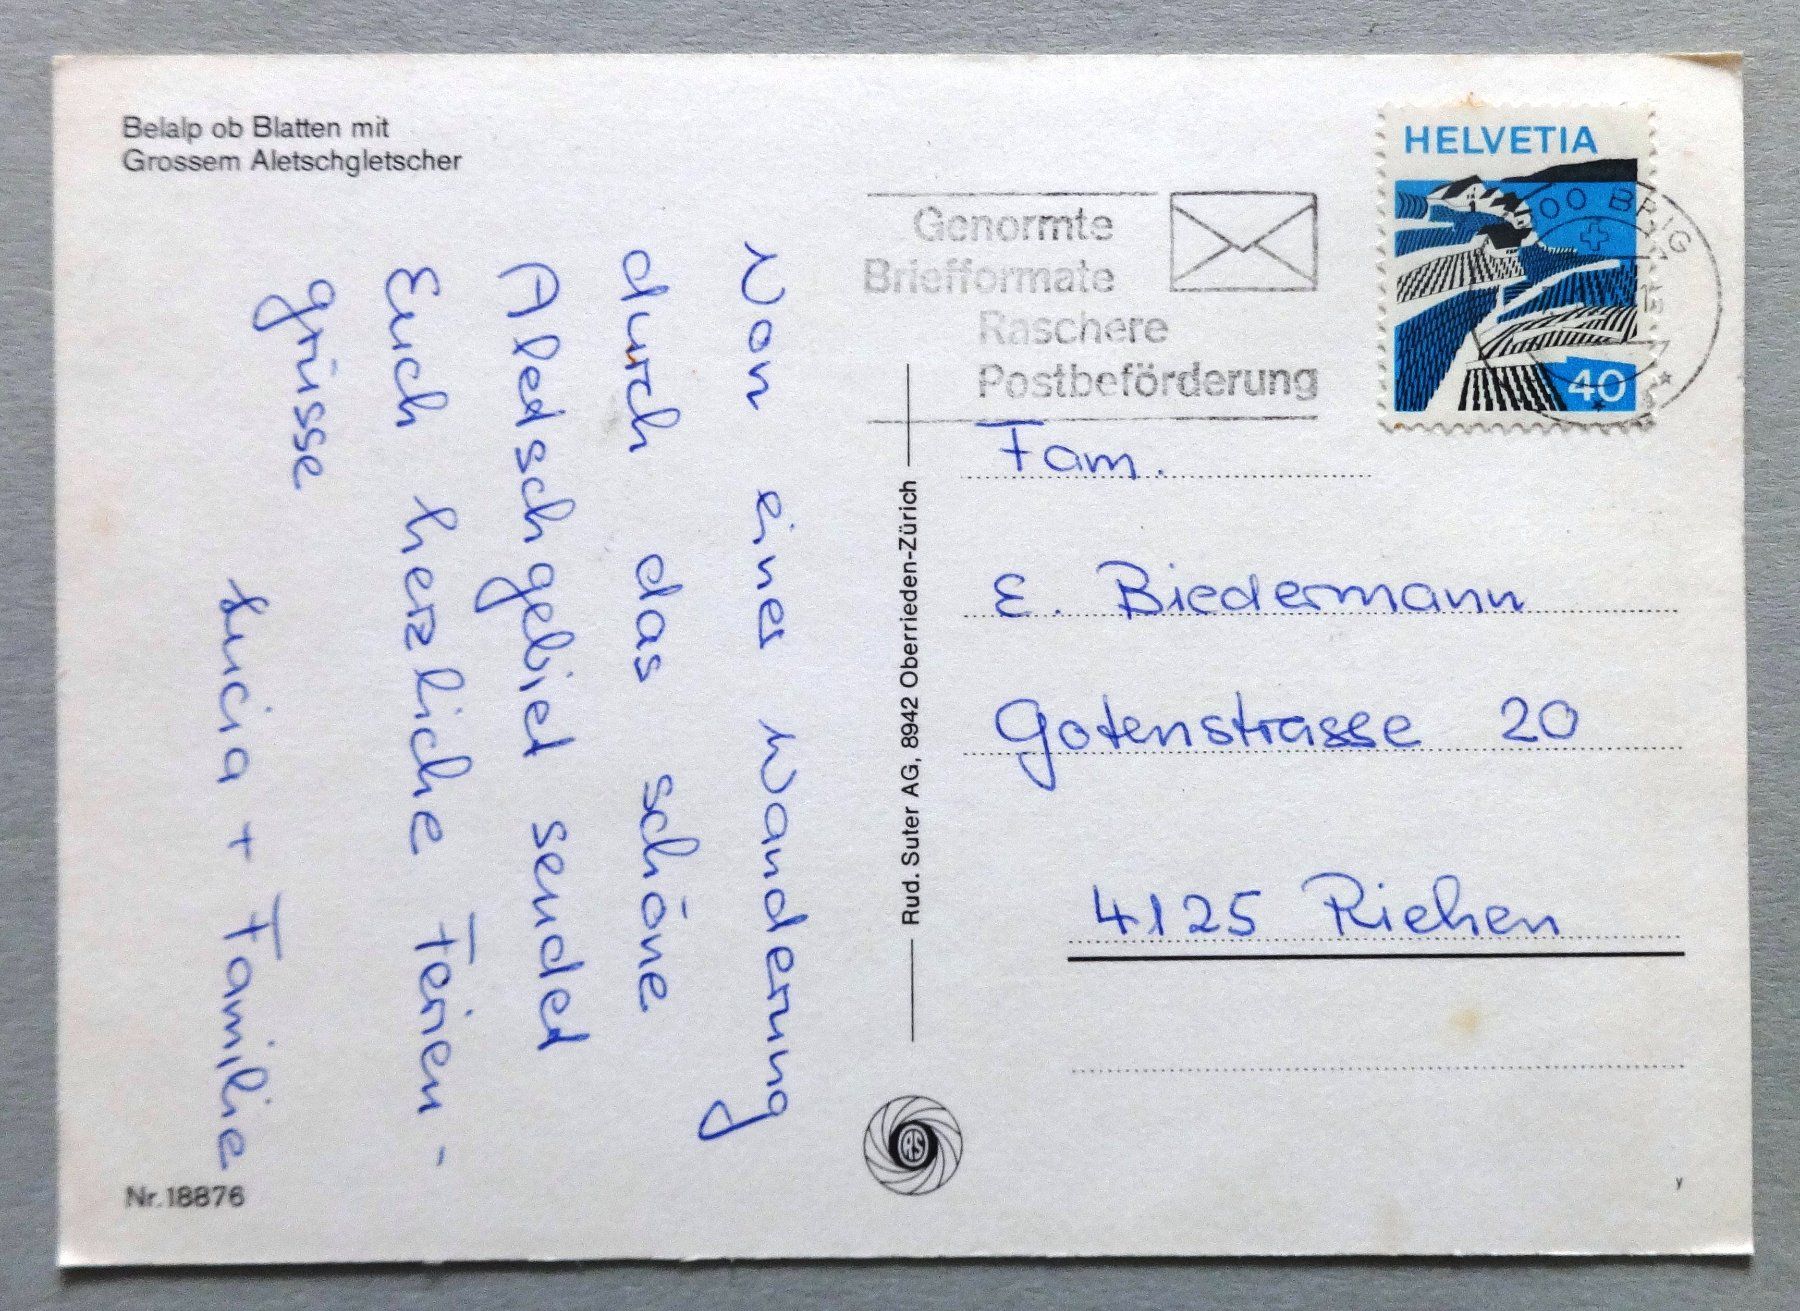 Belalp ob Blatten mit
Grossem Aletschgletscher
Von einer Wanderung
durch das schöne
Aletschgebiet sendet
Euch herzliche Ferien-
grüsse
Lucia + Familie
Nr. 18876
Rud. Suter AG, 8942 Oberrieden-Zürich
RS
Genormte
Briefformate
Raschere
Postbeförderung
HELVETIA
40
00 BRIG
Fam.
E. Biedermann
Gotenstrasse 20
4125 Riehen
y